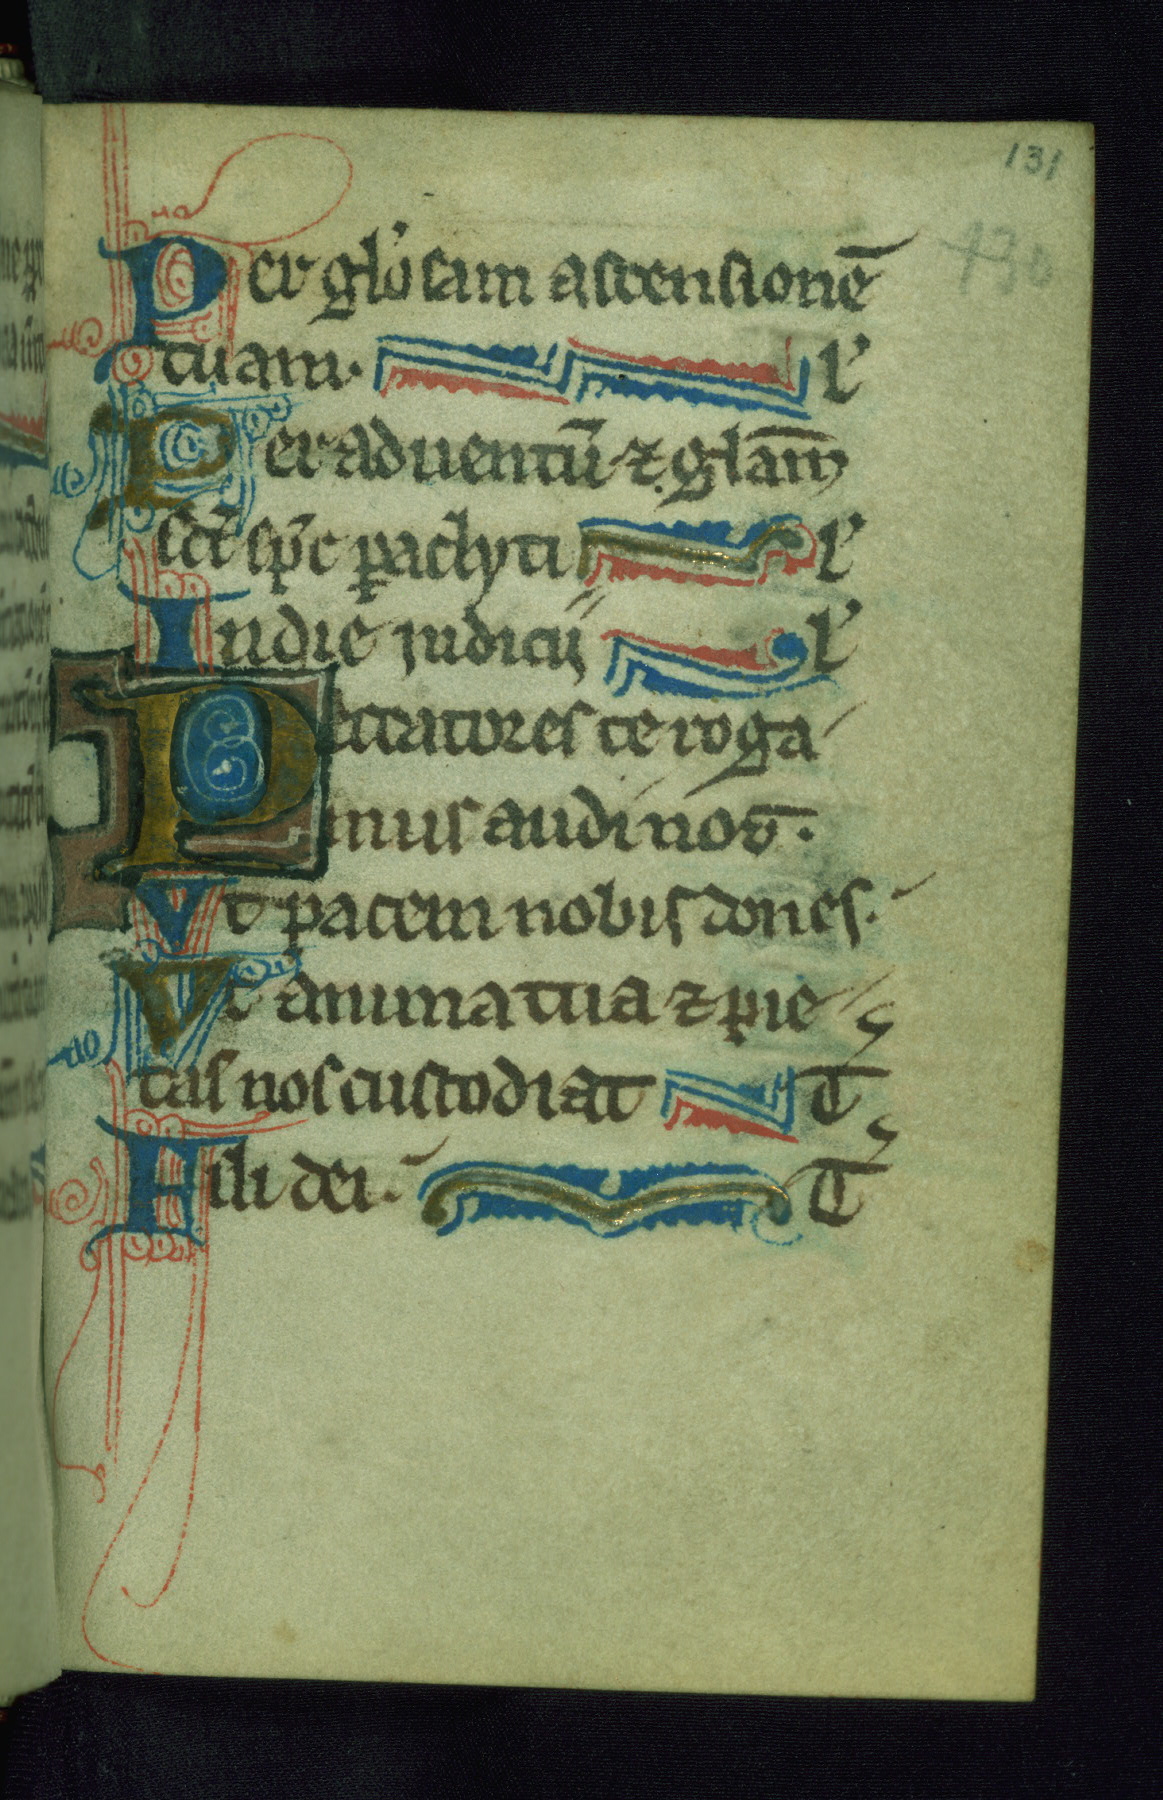 131
130
Per gl'osam ascensionē
tuam. l'
Per aduentū ⁊ glām
sc̄i sp̄c paclyti l'
In die iudicij l'
Peccatores te roga
mus audi nos.
Vt pacem nobis dones.
Vt animatua ⁊ pie
tas nos custodiat T
Fili dei. T